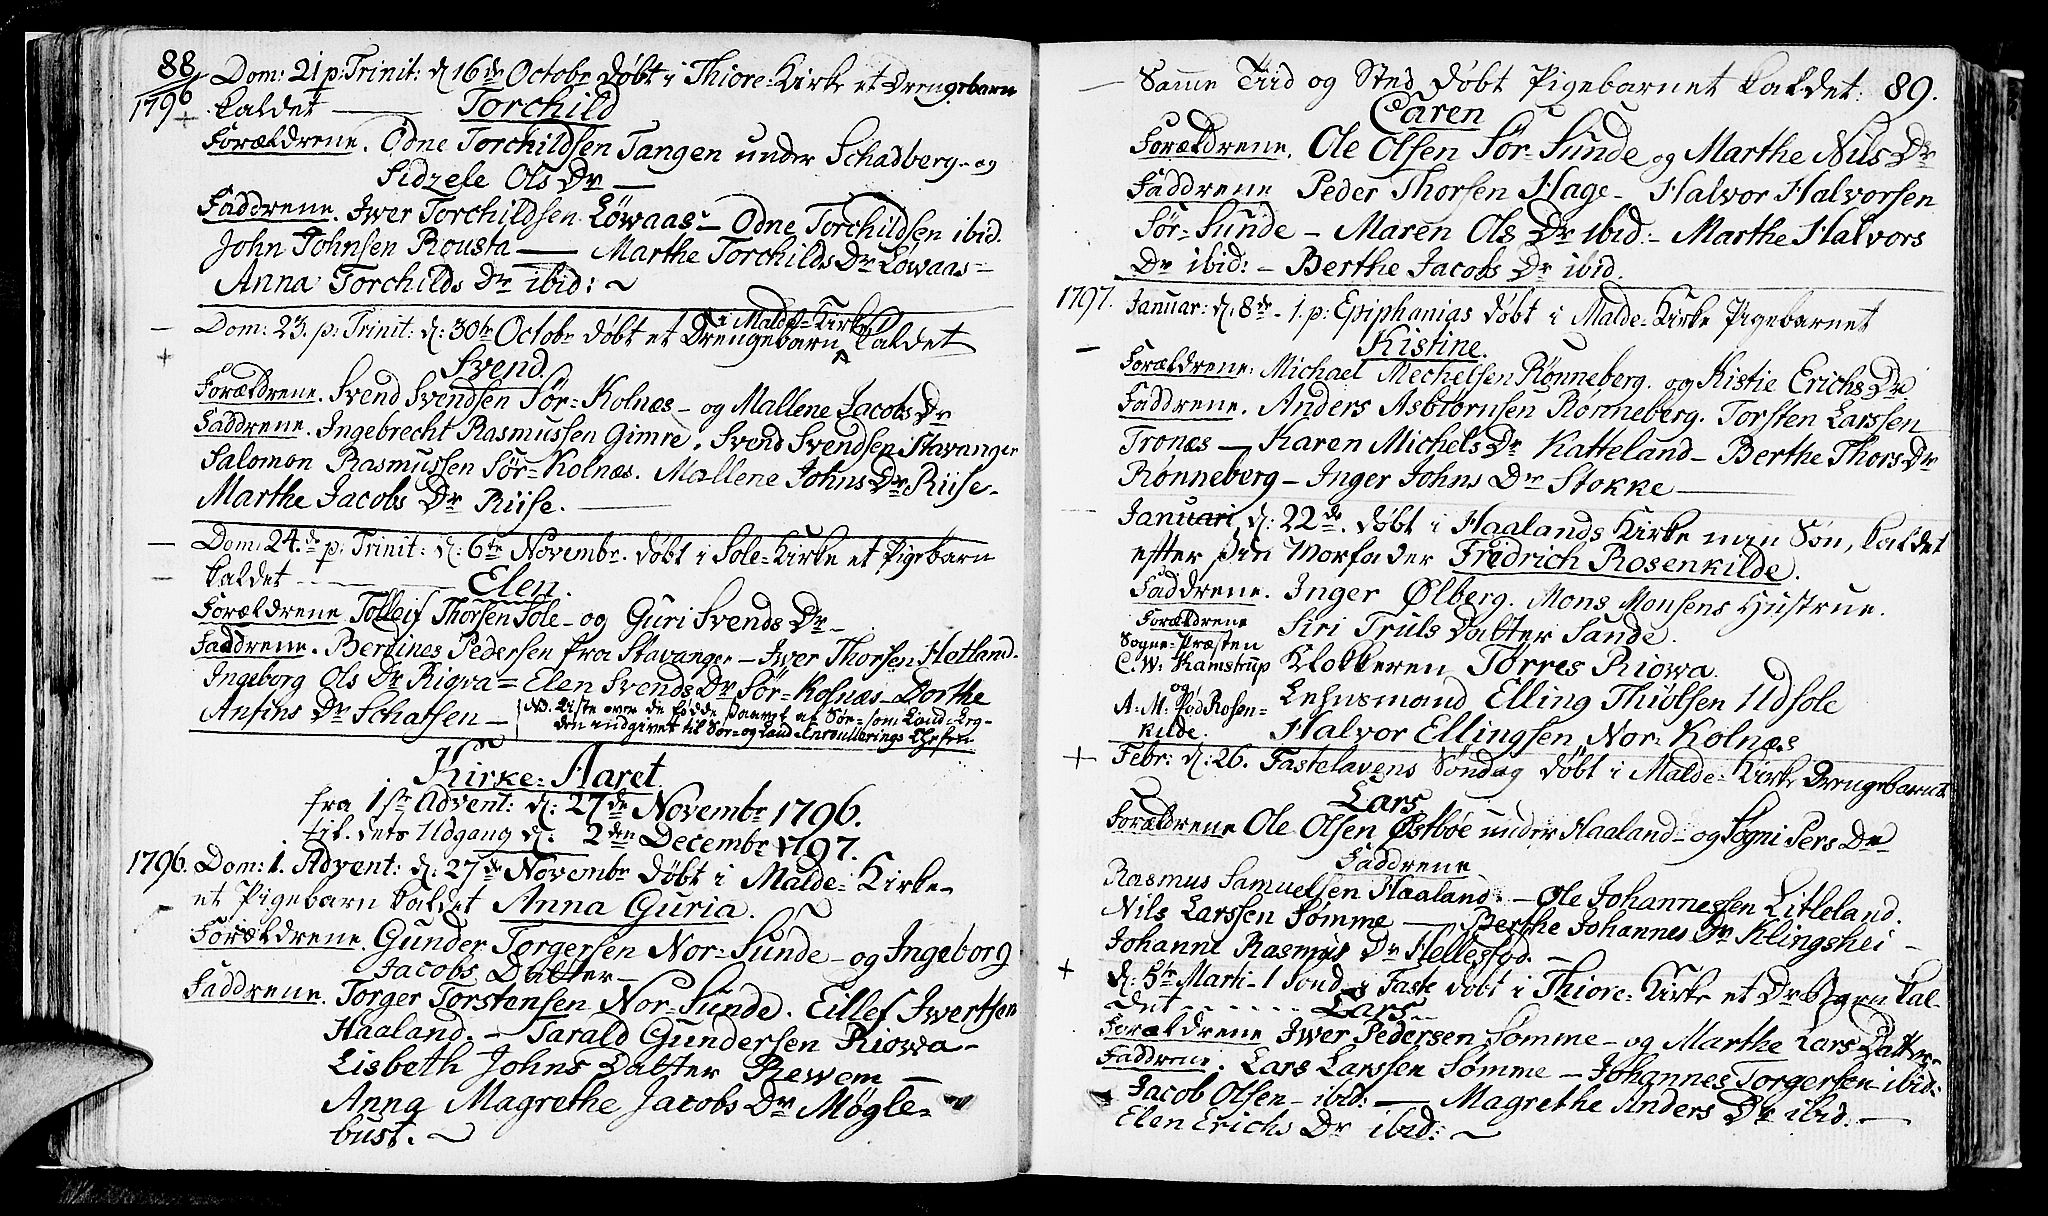 88
1796
Dom: 21 p: Trinit: d 16de Octobr døbt i Thiore-Kirke et Drengebarn
kaldet — Torchild
Forældrene. Odne Torchildsen Tangen under Schadberg- og
Sidzele Ols Dr —
Faddrene. Iwer Torchildsen Løwaas - Odne Torchildsen ibid.
John Johnsen Rousta — Marthe Torchilds Dr Løwaas-
Anna Torchilds Dr ibid: ~
i Malde-Kirke
Dom: 23. p: Trinit: d: 30te Octobr døbt et Drengebarn ^ kaldet
Svend.
Forældrene. Svend Svendsen Sør-Kolnæs - og Mallene Jacobs Dr
Faddrene. Ingebrecht Rasmussen Gimre. Svend Svendsen Stavanger
Salomon Rasmussen Sør-Kolnæs. Mallene Johns Dr Riise-
Marthe Jacobs Dr Riise. —
Dom: 24.de p: Trinit: d: 6te Novembr. døbt i Sole-Kirke et Pigebarn
kaldet — Elen.
Forældrene Tolleif Thorsen Sole - og Guri Svends Dr -
Faddrene. Berdines Pedersen fra Stavanger - Iwer Thorsen Hetland-
Ingeborg Ols Dr Rigva = Elen Svends Dr Sør-Kolnæs - Dorthe
Anfins Dr Schatsen —
NB. Liste over de fødde saavel af Sør- som Land-Leg-
den indgivet til Sør- og Land-Enroullerings Chefen
Kirke-Aaret
fra 1ste Advent: d: 27de Novembr 1796.
til dets Udgang d: 2den Decembr 1797.
1796. Dom: 1. Advent: d: 27de Novembr døbt i Malde-Kirke-
et Pigebarn kaldet Anna Guria. ~
Forældrene. Gunder Torgersen Nor-Sunde - og Ingeborg
Jacobs Datter -
Faddrene. Torger Torstensen Nor-Sunde. Eillef Iwertsen
Haaland. - Tarald Gundersen Riowa-
Lisbeth Johns Datter Rewem —
Anna Magrethe Jacobs Dr Møgle-
bust. ~
— Samme Tiid og Sted døbt Pigebarnet kaldet: 89.
Caren
Forældrene. Ole Olsen Sør-Sunde og Marthe Nils Dr
Faddrene Peder Thorsen Hage - Halvor Halvorsen
Sør-Sunde - Maren Ols Dr ibid: - Marthe Halvors
Dr ibid: - Berthe Jacobs Dr ibid.
1797. Januar: d: 8de - 1. p: Epiphanias døbt i Malde-Kirke Pigebarnet
Kistine.
Forældrene: Michael Mechelsen Rønneberg. og Kistie Erichs Dr
Faddrene. Anders Asbiørnsen Rønneberg. Torsten Larssen
Tronæs — Karen Michels Dr Katteland - Berthe Thors Dr
Rønneberg - Inger Johns Dr Stokke —
Januari d: 22de. døbt i Haalands Kirke min Søn, kaldet
efter sin Morfader Fridrich Rosenkilde.
Faddrene. Inger Ølberg. Mons Monsens Hustrue.
Forældrene Siri Truls Datter Sande.
Sogne-Præsten
C. W. Kamstrup Klokkeren Tørres Riowa.
og
A. M. Fød Rosen- Lehnsmand Elling Thiølsen Udsole
kilde. Halvor Ellingsen Nor-Kolnæs
Febr: d: 26. Fastelavens Søndag døbt i Malde-Kirke Drengebarnet
Lars
Forældrene Ole Olsen Østbøe under Haaland - og Søgni Pers Dr
Faddrene
Rasmus Samuelsen Haaland. - Ole Johannessen Litleland.
Nils Larssen Sømme — Berthe Johannes Dr Klingshei -
Johanne Rasmus Dr Hellestød. —
d: 5te Marti - 1 Sønd. i Faste døbt i Thiore-Kirke et Dr Bgrn kal-
det - - - - - Lars -
Forældrene Iwer Pedersen Somme - og Marthe Lars Datter
Faddrene. Lars Larssen Sømme - Johannes Torgersen ibid:
Jacob Olsen - ibid: — Magrethe Anders Dr ibid. —
Elen Erichs Dr ibid: ~